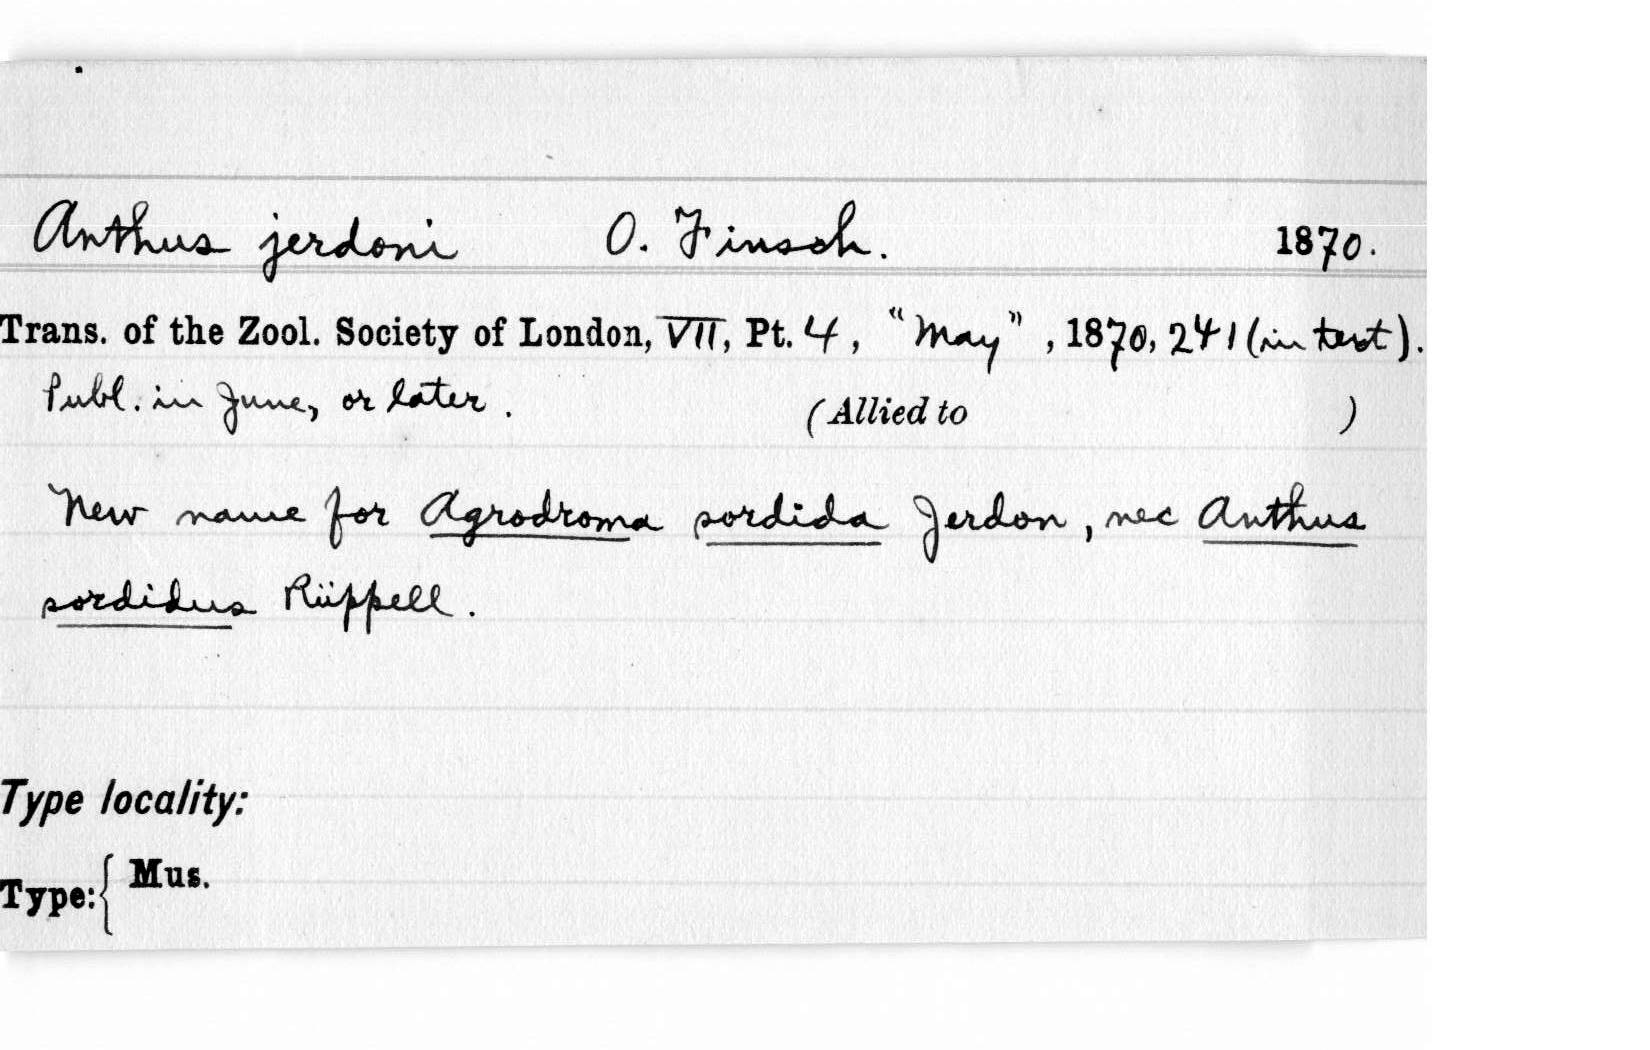 Anthus jerdoni O. Finsch. 1870.
Trans. of the Zool. Society of London, VII, Pt. 4, "May", 1870, 241 (in text).
Publ. in June, or later. (Allied to )
New name for Agrodroma sordida Jerdon, nec Anthus
sordidus Rüppell.
Type locality:
Type: { Mus.